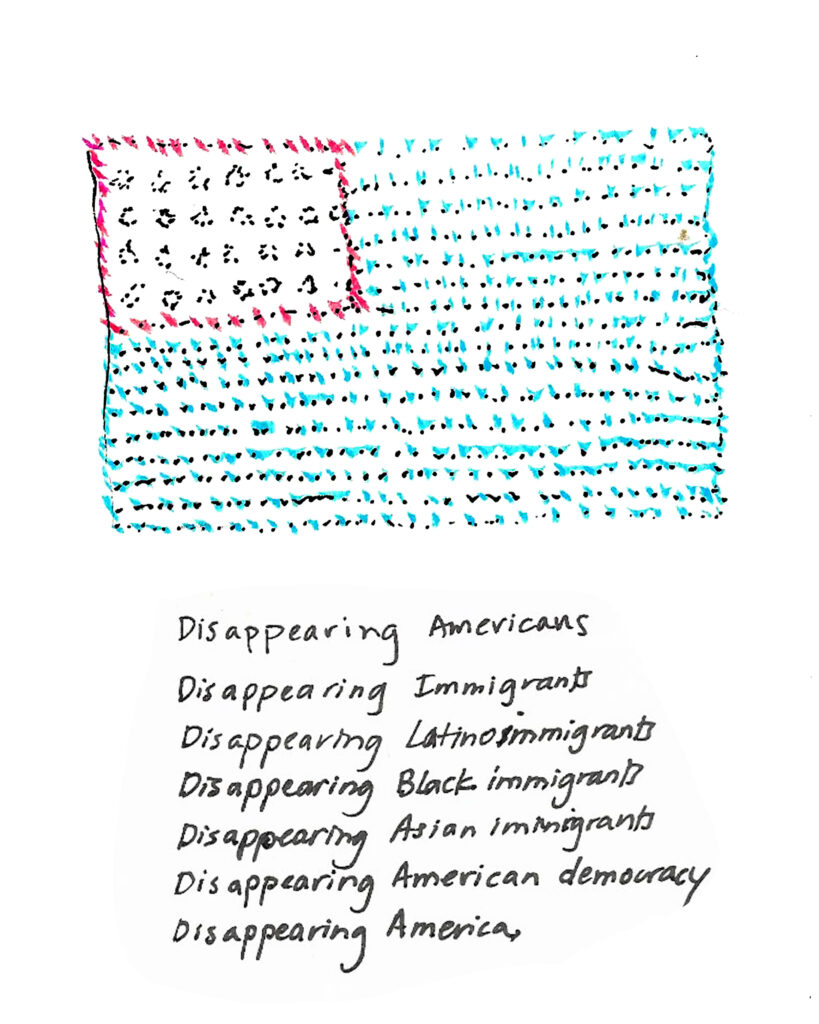 Disappearing Americans
Disappearing Immigrants
Disappearing Latinos immigrants
Disappearing Black immigrants
Disappearing Asian immigrants
Disappearing American democracy
Disappearing America,